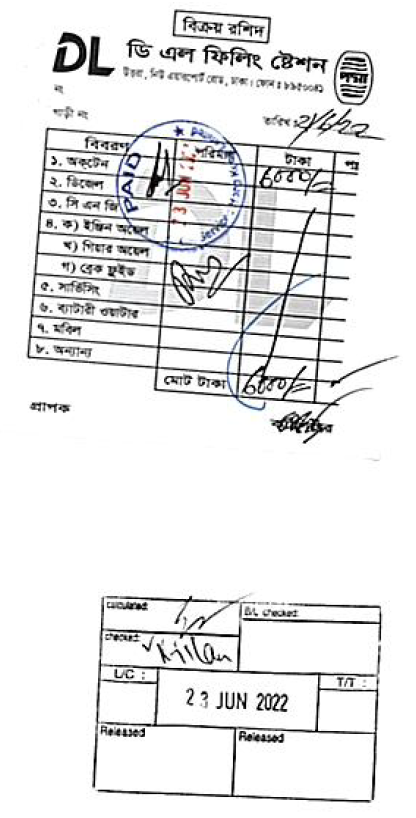 বিক্রয় রশিদ
DL ডি এল ফিলিং ষ্টেশন
পদ্মা
উত্তরা, নিউ এয়ারপোর্ট রোড, ঢাকা। ফোন : ৮৯৫০০৪১
নং
গাড়ী নং
তারিখ
বিবরণ পরিমাণ টাকা
১. অকটেন
২. ডিজেল
৩. সি এন জি
৪. ক) ইঞ্জিন অয়েল
খ) গিয়ার অয়েল
গ) ব্রেক ফ্লুইড
৫. সার্ভিসিং
৬. ব্যাটারী ওয়াটার
৭. মবিল
৮. অন্যান্য
মোট টাকা
PAID
23 JUN
প্রাপক
calculated:
B/L checked:
checked:
L/C :
23 JUN 2022
T/T :
Released
Released